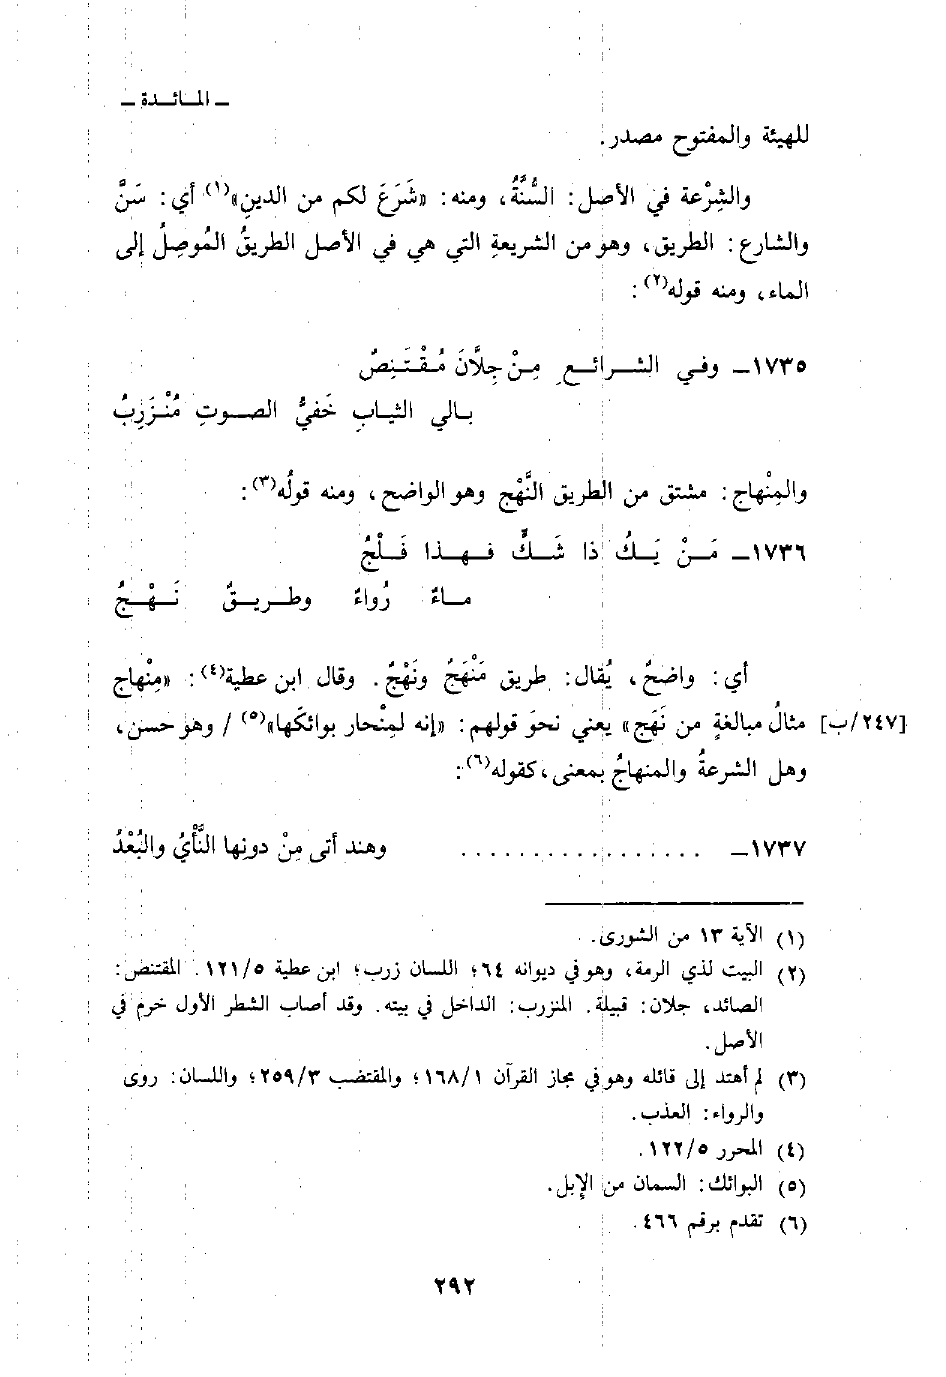 ـ المـائـدة ـ
للهيئة والمفتوح مصدر.
والشِرْعة في الأصل: السُّنَّةُ، ومنه: «شَرَعَ لكم من الدينِ»(١) أي: سَنَّ
والشارع: الطريق، وهو من الشريعةِ التي هي في الأصل الطريقُ المُوصِلُ إلى
الماء، ومنه قوله(٢):
١٧٣٥ـ وفـي الشــرائــعِ مِـنْ جِلَّانَ مُـقْـتَـنِصٌ
بـالي الثيـابِ خَفيُّ الصـوتِ مُنْـزَرِبُ
والمِنْهاج: مشتق من الطريق النَّهْج وهو الواضح، ومنه قولُه(٣):
١٧٣٦ـ مَــنْ يَــكُ ذا شَــكٍّ فـهـذا فَــلْجُ
مـاءٌ رُواءٌ وطـريـقٌ نَـهْـجُ
أي: واضحٌ، يُقال: طريق مَنْهَجٌ ونَهْجٌ. وقال ابن عطية(٤): «مِنْهاج
[٢٤٧/ب] مثالُ مبالغةٍ من نَهَج» يعني نحوَ قولهم: «إنه لمِنْحار بوائكَها»(٥) / وهو حسن،
وهل الشرعةُ والمنهاجُ بمعنى، كقوله(٦):
١٧٣٧ـ . . . . . . . . . . . . . . . . . وهند أتى مِنْ دونِها النَّأْيُ والبُعْدُ
(١) الآية ١٣ من الشورى.
(٢) البيت لذي الرمة، وهو في ديوانه ٦٤؛ اللسان زرب؛ ابن عطية ١٢١/٥. المقتنص:
الصائد، جلان: قبيلة. المنزرب: الداخل في بيته. وقد أصاب الشطر الأول خرم في
الأصل.
(٣) لم أهتد إلى قائله وهو في مجاز القرآن ١٦٨/١؛ والمقتضب ٢٥٩/٣؛ واللسان: روى
والرواء: العذب.
(٤) المحرر ١٢٢/٥.
(٥) البوائك: السمان من الإبل.
(٦) تقدم برقم ٤٦٦.
٢٩٢